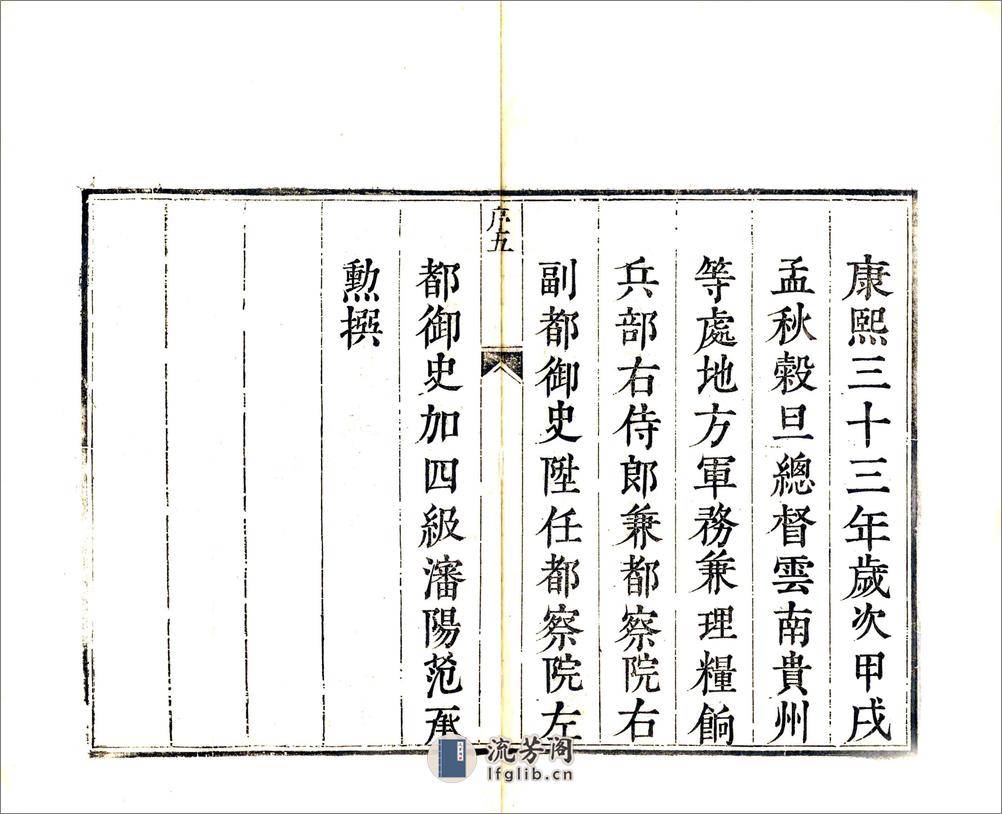 康熙三十三年歲次甲戌
孟秋穀旦總督雲南貴州
等處地方軍務兼理糧餉
兵部右侍郎兼都察院右
副都御史陞任都察院左
序五
都御史加四級瀋陽范承
勲撰
流芳阁
lfglib.cn